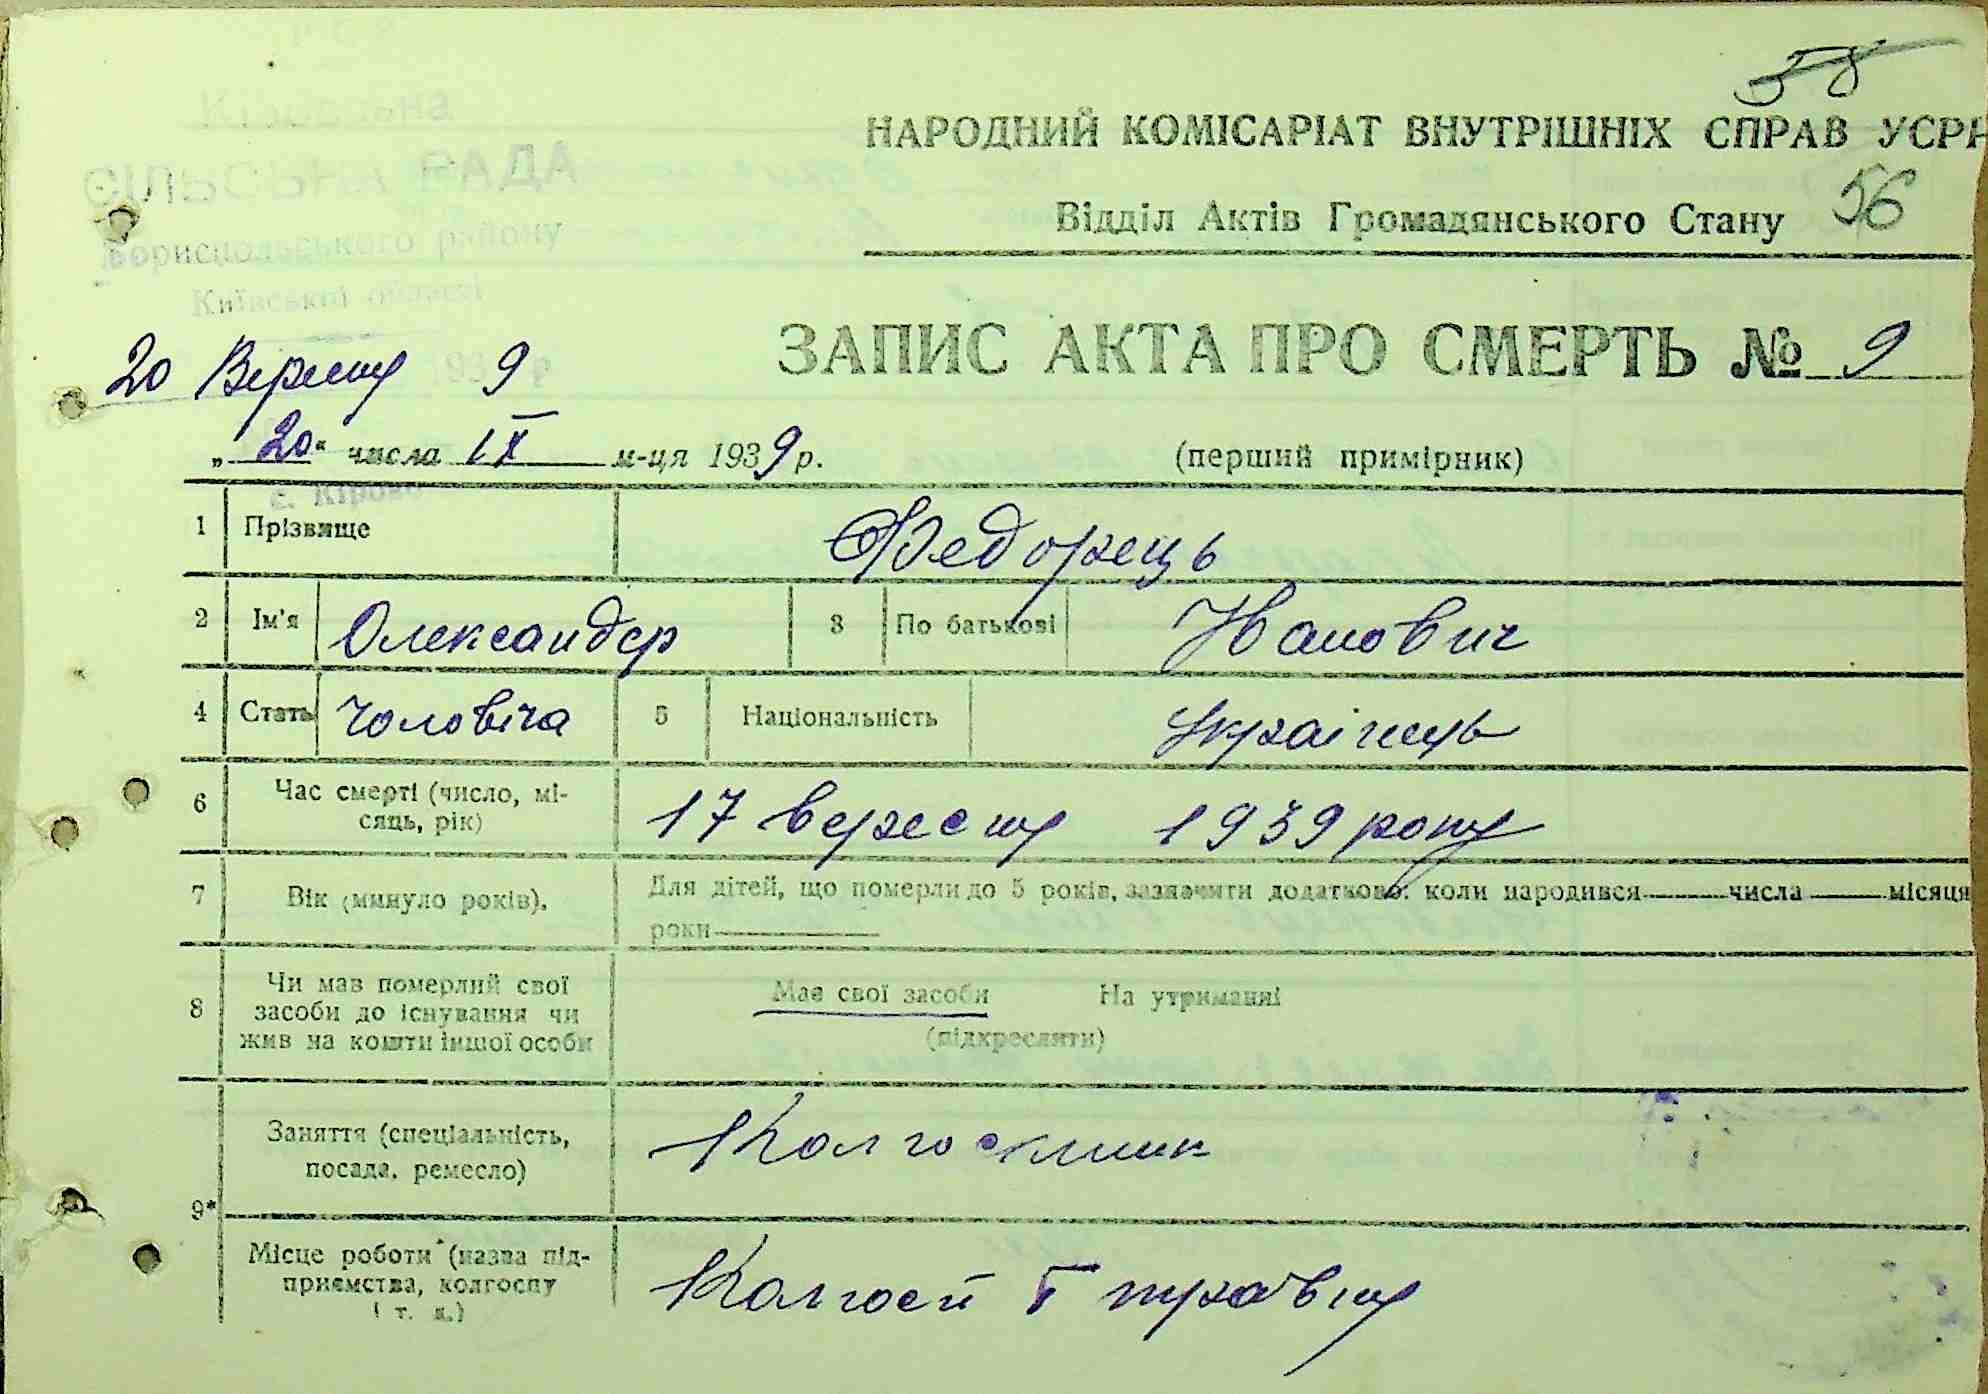 58
НАРОДНИЙ КОМІСАРІАТ ВНУТРІШНІХ СПРАВ УСРР
56
Відділ Актів Громадянського Стану
СІЛЬСЬКА РАДА
Бориспольського району
Київської області
20 Вересня 9
ЗАПИС АКТА ПРО СМЕРТЬ № 9
„20“ числа IX м-ця 1939 р.
(перший примірник)
с. Кірово
1 Прізвище Федорець
2 Ім'я Олександер 3 По батькові Іванович
4 Стать чоловіча 5 Національність Українець
6 Час смерті (число, мі-
сяць, рік) 17 вересня 1939 року
7 Вік (минуло років). Для дітей, що померли до 5 років, зазначити додатково: коли народився числа місяця
роки
8 Чи мав померлий свої
засоби до існування чи
жив на кошти іншої особи
Має свої засоби На утриманні
(підкреслити)
9* Заняття (спеціальність,
посада, ремесло) Колгоспник
Місце роботи (назва під-
приємства, колгоспу
і т. д.) Колгосп 1 травня